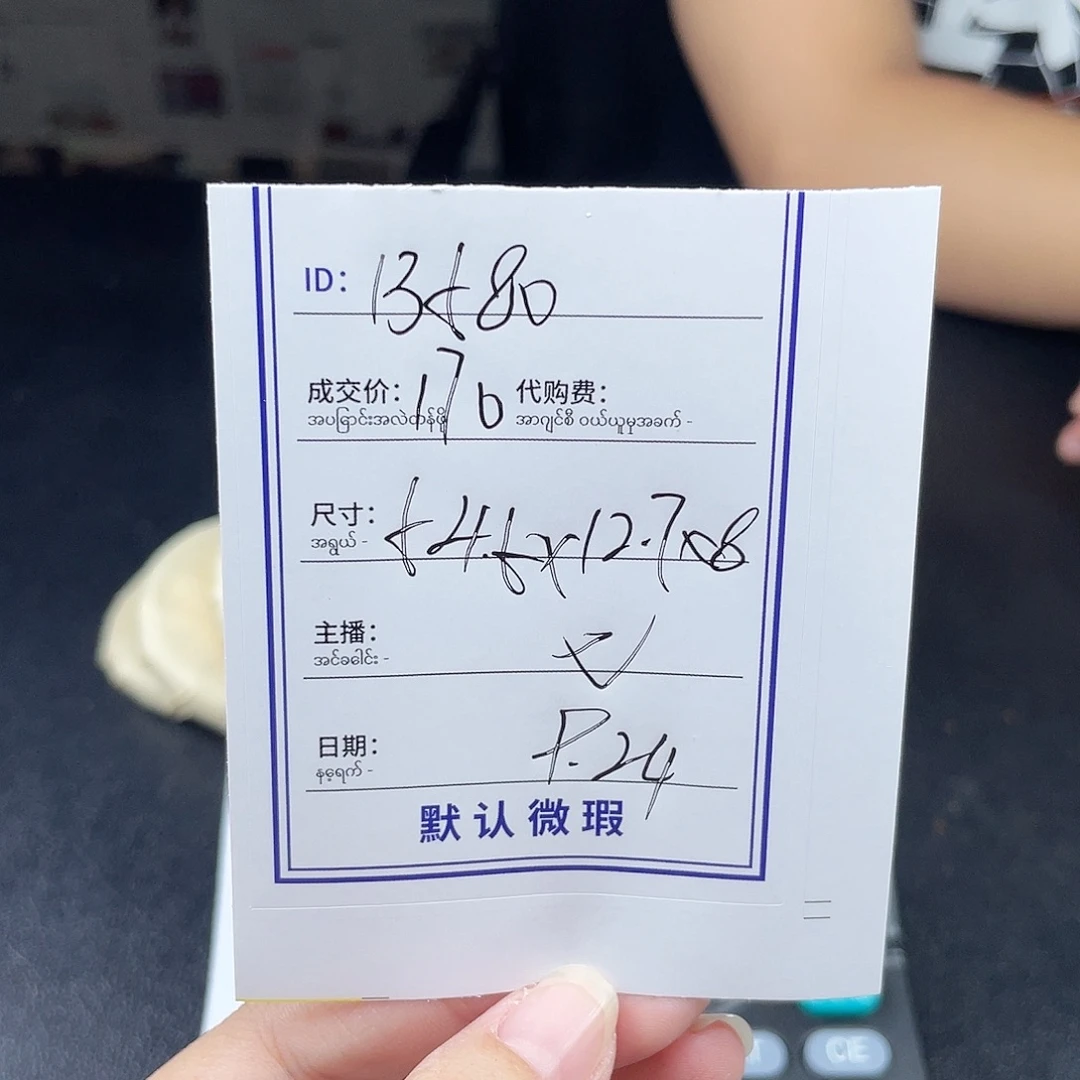 ID: 13580
成交价: 176 代购费:
အပြောင်းအလဲတန်ဖို အာဂျင်စီ ဝယ်ယူမှုအခက် -
尺寸: 54.6x12.7x8
အရွယ် -
主播:
အင်ခေါင်း -
日期: 8.24
နေ့ရက် -
默认微瑕
CE